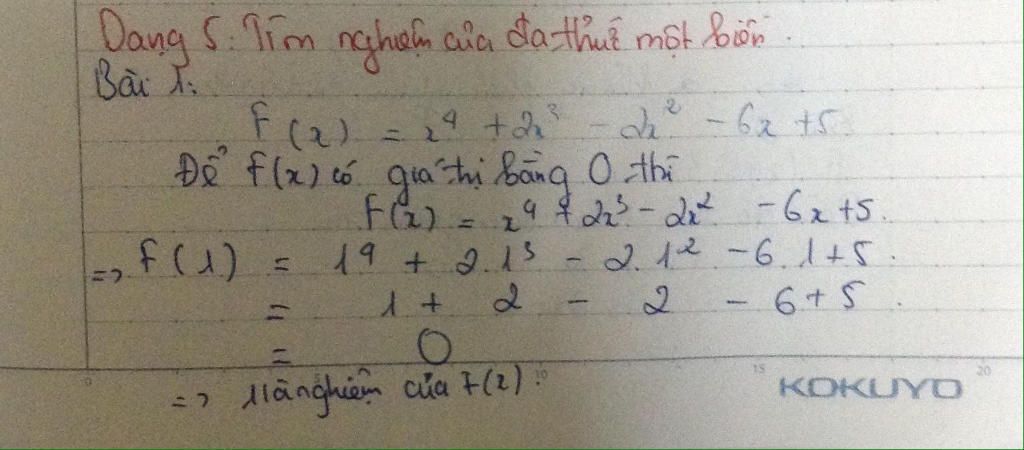 Dạng 5: Tìm nghiệm của đa thức một biến.
Bài 1:
F(x) = x⁴ + 2x³ - 2x² - 6x + 5
Để F(x) có giá trị bằng 0 thì
F(x) = x⁴ + 2x³ - 2x² - 6x + 5.
=> F(1) = 1⁴ + 2.1³ - 2.1² - 6.1 + 5.
= 1 + 2 - 2 - 6 + 5.
= 0
0 10 15 20
=> 1 là nghiệm của F(x).
KOKUYO